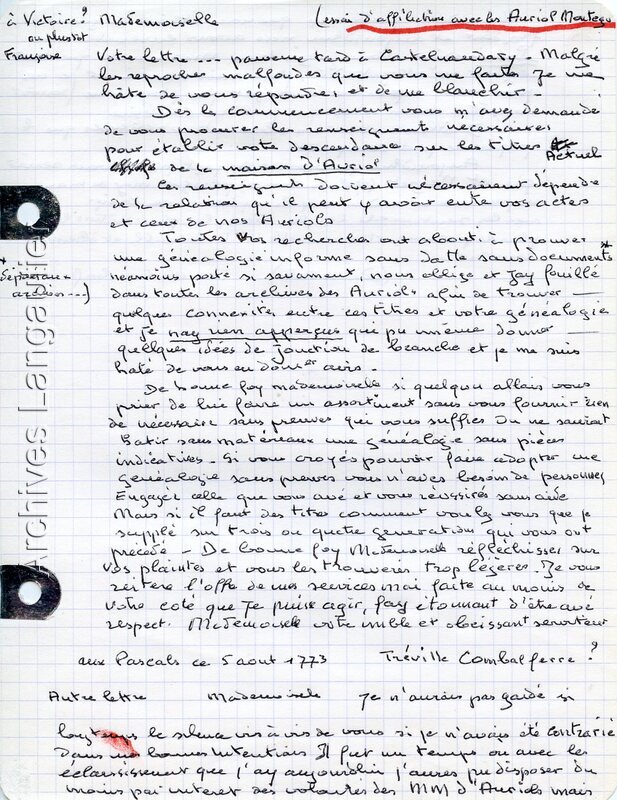 à Victoire ? Mademoiselle (essai d'affiliation avec les Auriol Montagu
ou plustot
Françoise
Votre lettre ... parvenue tard à Castelnaudary - Malgré
les reproches malfondés que vous me faites je me
hâte de vous répondre et de me blanchir -
Dès le commencement vous m'avez demandé
de vous procurer les renseignements nécessaires
pour établir votre descendance sur les titres
Actuel
de la maison d'Auriol
Ces renseignts doivent nécessairement dépendre
de la relation qu'il peut y avoir entre vos actes
et ceux de nos Auriols
Toutes vos recherches ont abouti à prouver
une généalogie informe sans datte sans documents *
néamoins porté si savament, nous oblige et jay fouillé
* Départaux
archives ...)
dans toutes les archives des Auriols afin de trouver -
quelques connexités entre ces titres et votre généalogie
et je nay rien apperçus qui pu même donner -
quelques idées de jonction de branche et je me suis
haté de vous en donner avis.
De bonne foy mademoiselle si quelqun allais vous
prier de lui faire un assortiment sans vous fournir rien
de nécessaire sans preuves qui vous suffies On ne sauroit
Batir sans matériaux une généalogie sans pièces
indicatives. Si vous croyés pouvoir faire adopter une
généalogie sans preuves vous n'avés besoin de personnes
Engagés celle que vous avé et vous réussirés sans aide
Mais si il faut des titres comment voulez vous que je
supplé sur trois ou quatre generation qui vous ont
précédé - De bonne foy Mademoiselle réfléchisses sur
vos plaintes et vous les trouverés trop légères. Je vous
reitere l'offre de mes services mai faite au moins de
votre coté que je puisse agir, jay étonnant d'être avé
respect. Mademoiselle votre umble et obeissant serviteur
aux Pascals ce 5 aout 1773 Tréville Combalferre ?
Autre lettre Mademoiselle Je n'aurais pas gardé si
longtemps le silence vis à vis de vous si je n'avais été contrarié
Dans mes bonnes intentions Il fut un temps ou avec les
éclaircissement que j'ay aujourdhui j'aurais pu disposer du
moins par interet des volontés des MM d'Auriols mais
Archives Langautier